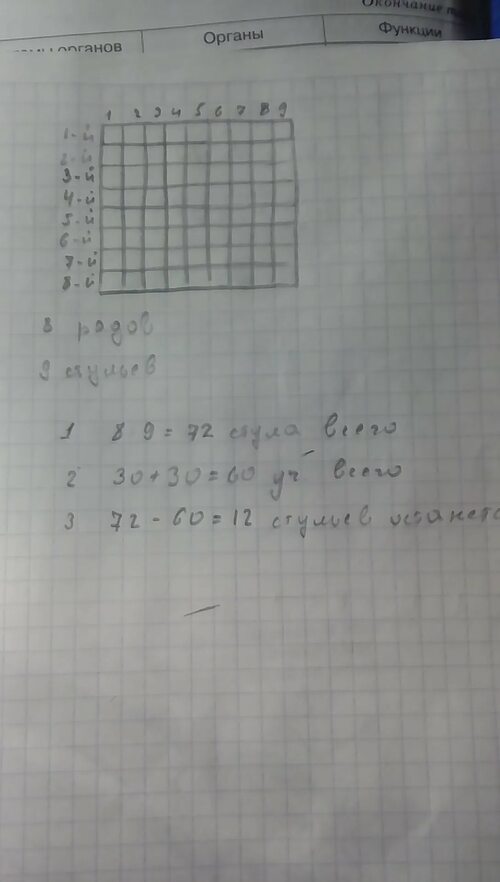 Окончание
органов Органы Функции
1 2 3 4 5 6 7 8 9
1-й
2-й
3-й
4-й
5-й
6-й
7-й
8-й
8 рядов
9 стульев
1 8 9 = 72 стула всего
2 30+30=60 уч всего
3 72-60=12 стульев останетс